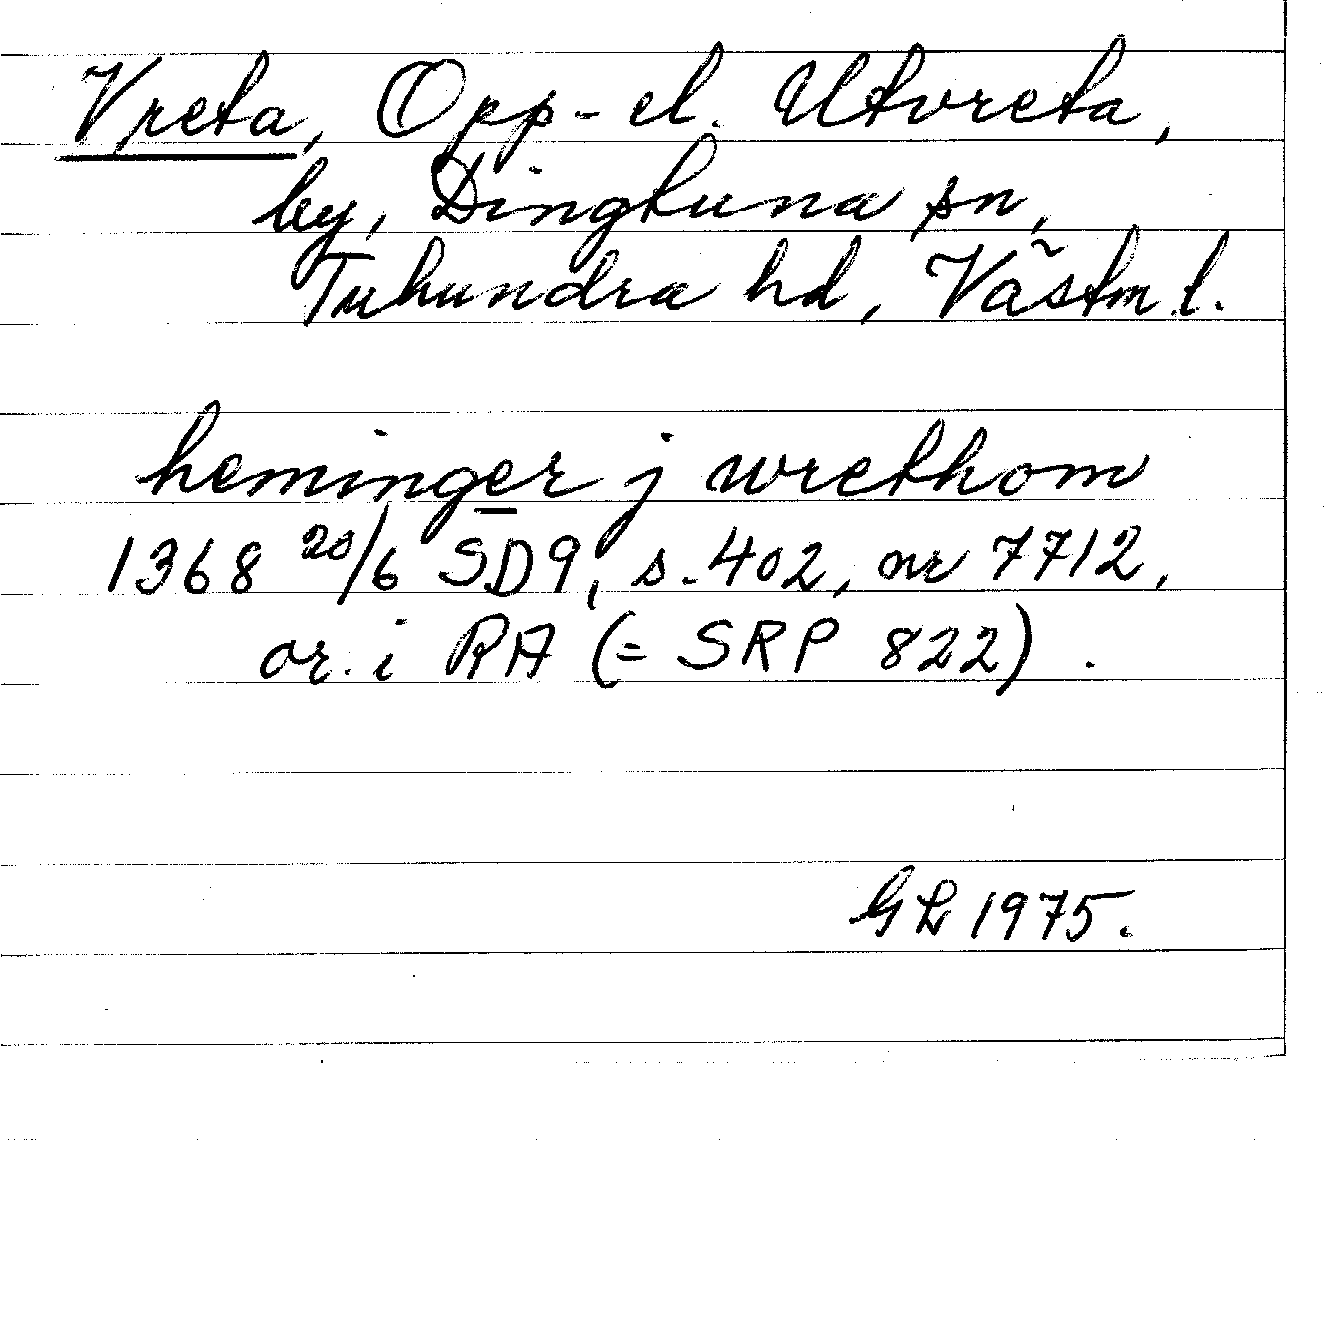 Vreta, Opp- el. Utvreta,
by, Dingtuna sn,
Tuhundra hd, Västm. l.
heminger j wrethom
1368 20/6 SD9, s. 402, nr 7712,
or. i RA (= SRP 822).
GL 1975.